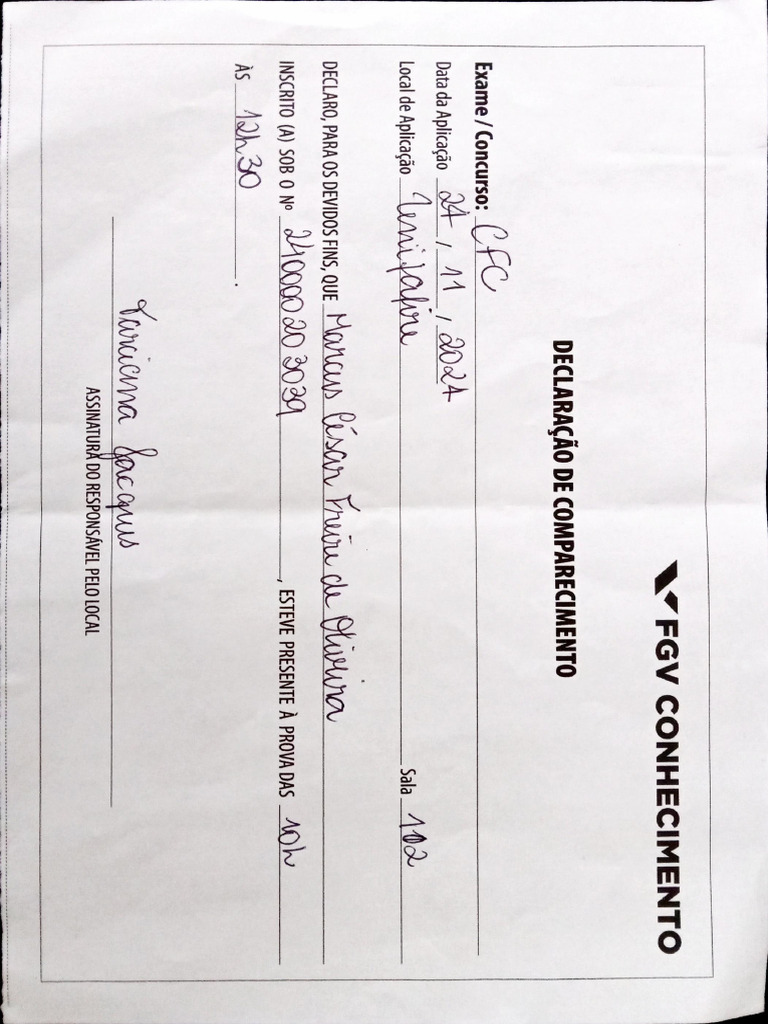 FGV CONHECIMENTO
DECLARAÇÃO DE COMPARECIMENTO
Exame / Concurso: CFC
Data da Aplicação 24 / 11 / 2024
Local de Aplicação Unifabre Sala 112
DECLARO, PARA OS DEVIDOS FINS, QUE Marcus César Freire de Oliveira
INSCRITO (A) SOB O Nº , ESTEVE PRESENTE À PROVA DAS 10h
ÀS 12h30 .
Jacques
ASSINATURA DO RESPONSÁVEL PELO LOCAL